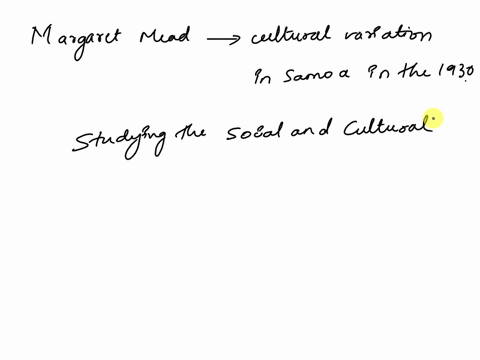 Margaret Mead → cultural variation
in Samoa in the 1930.
Studying the Soial and Cultural